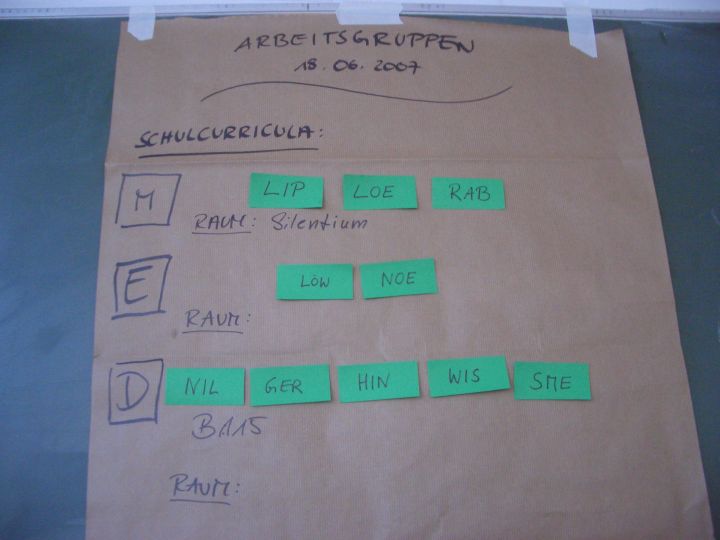 ARBEITSGRUPPEN
18.06.2007
SCHULCURRICULA:
M LIP LOE RAB
RAUM: Silentium
E LÖW NOE
RAUM:
D NIL GER HIN WIS SME
B115
RAUM: